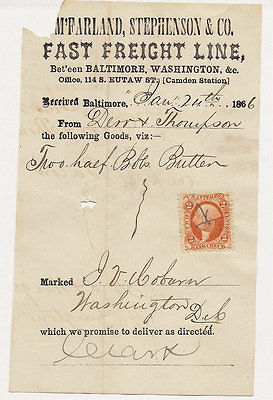 McFARLAND, STEPHENSON & CO.
FAST FREIGHT LINE,
Bet'een BALTIMORE, WASHINGTON, &c.
Office, 114 S. EUTAW ST., [Camden Station]
Received Baltimore, Jany 20th 1866
From Derr & Thompson
the following Goods, viz:
Two half Bbls Butter
2 2
BANK CHECK
Marked J. V. Coburn
Washington D.C
which we promise to deliver as directed.